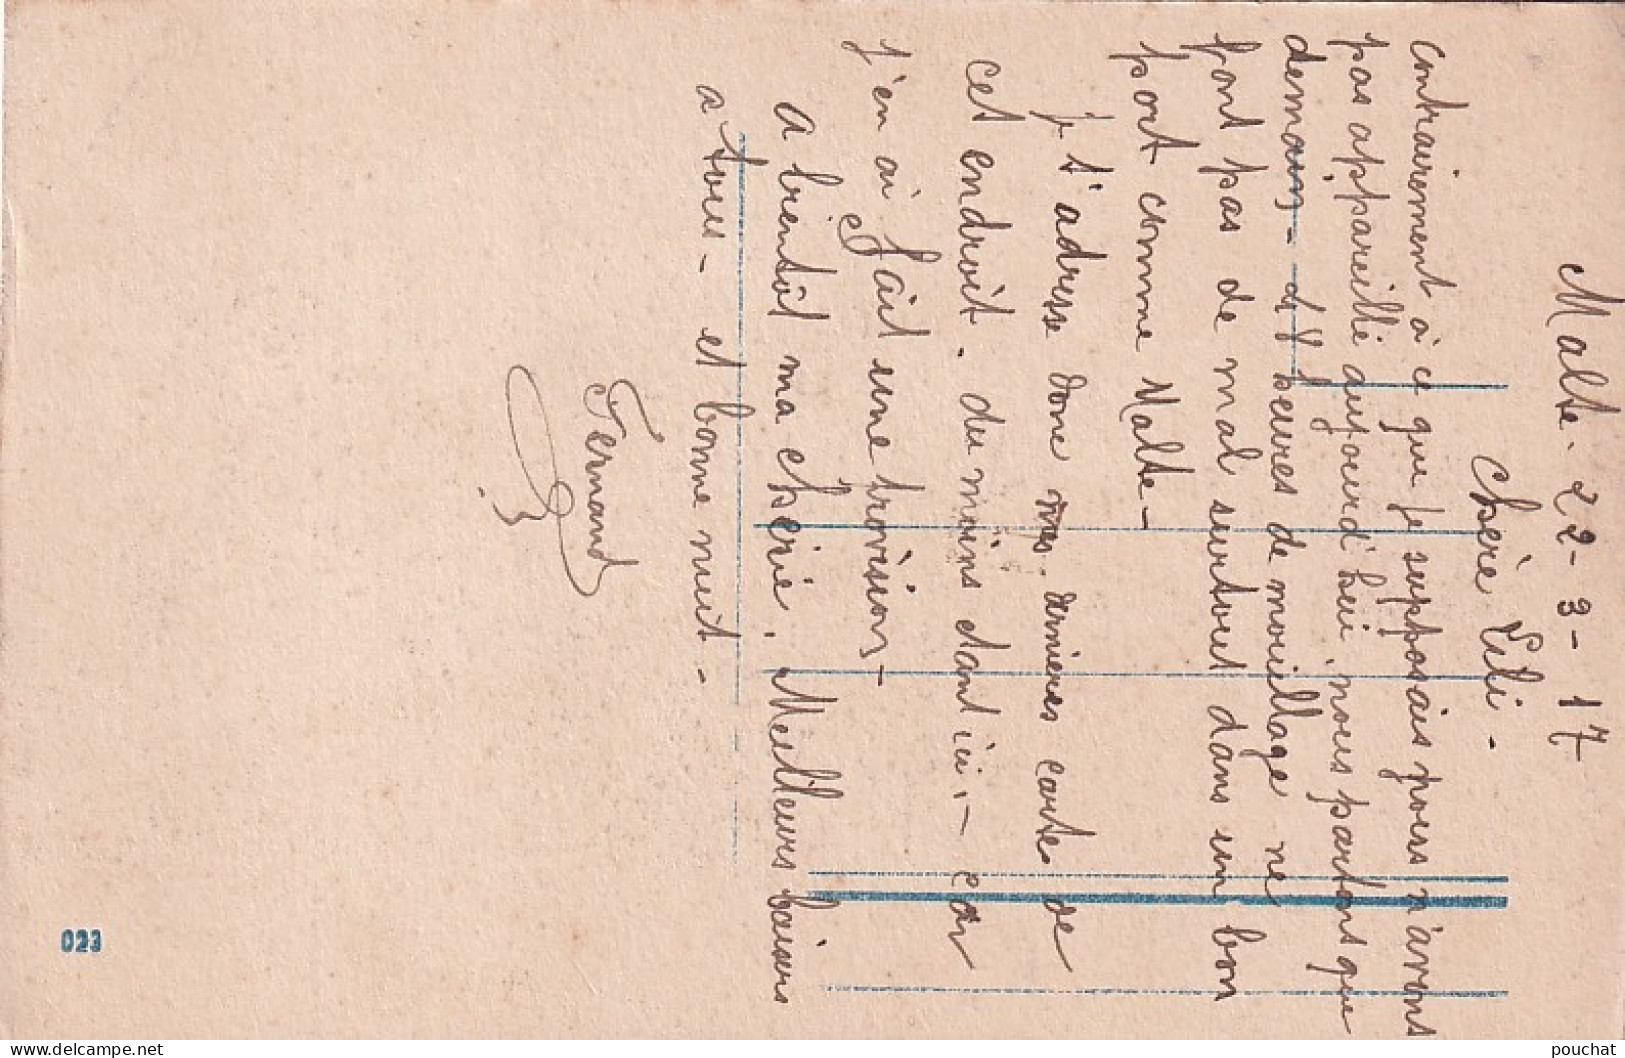 Malte. 22-3-17
Chère Lili-
contrairement à ce que je supposais nous n'avons
pas appareillé aujourd'hui, nous partons que
demain- 48 heures de mouillage ne
font pas de mal surtout dans un bon
port comme Malte-
je t'adresse donc mes dernières carte de
cet endroit. du moins étant ici,- car
j'en ai fait une provision-
A bientôt ma chérie. Meilleurs baisers
a tous- et bonne nuit-
Fernand
023
pouchat